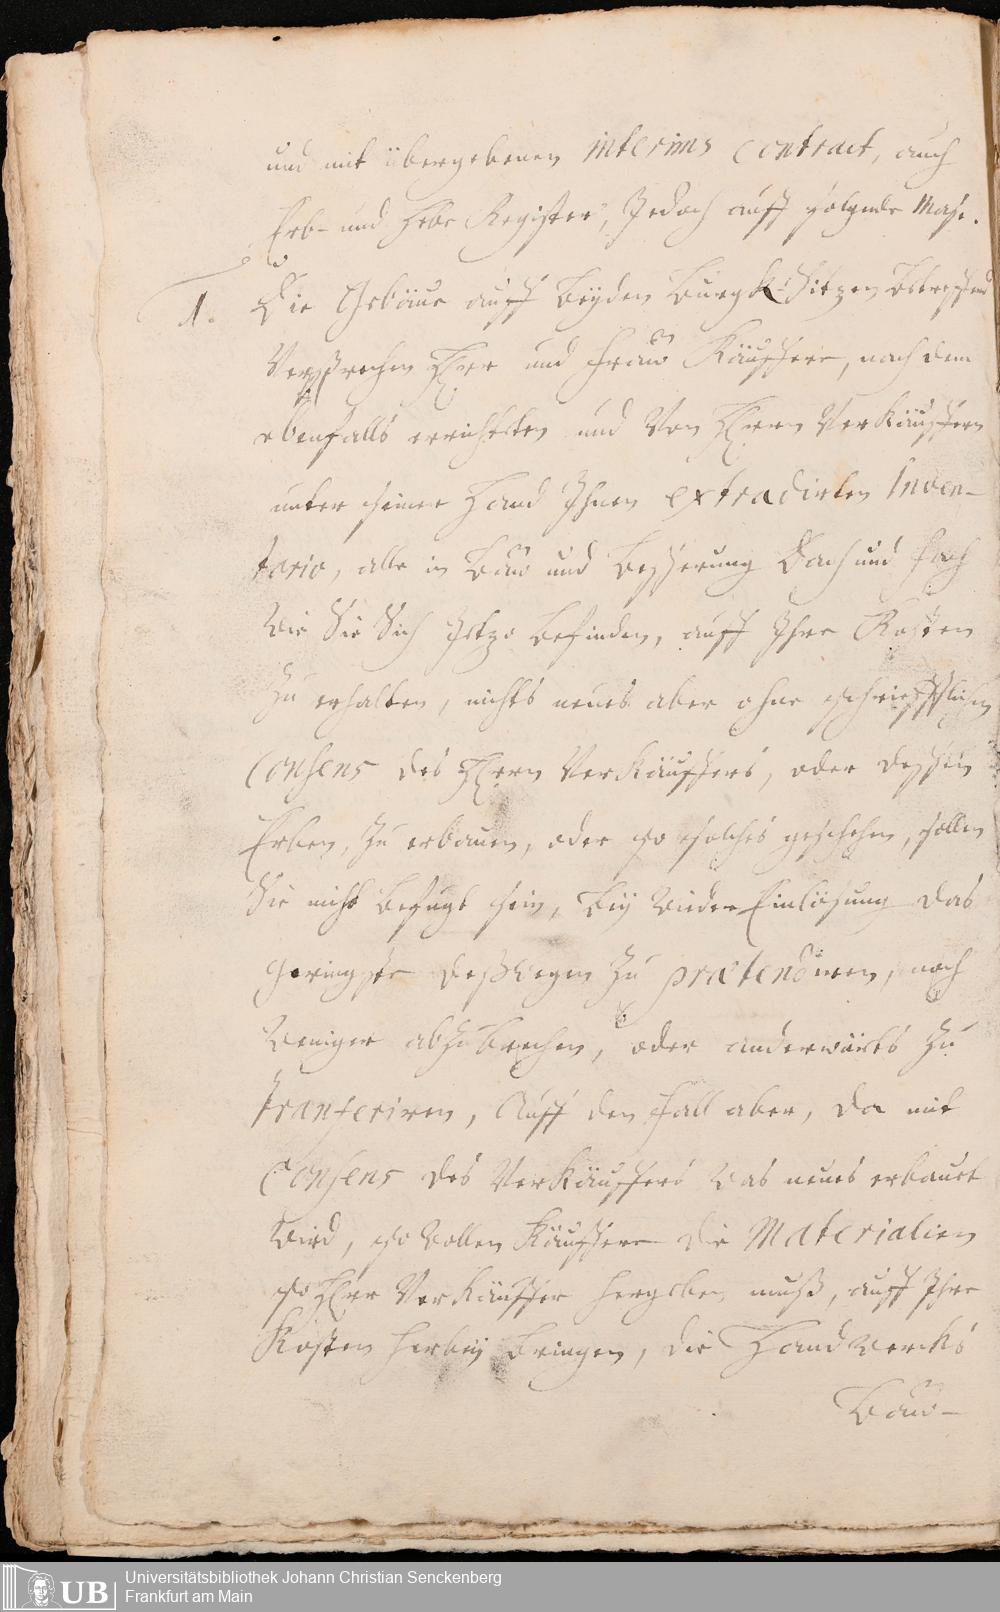 und mit übergebenen interims contract, auch
Erb- und Hebe Register, Jedoch auff folgende Mase.
1. Die Gebäue auff beyden Burgk-Sitzen betreffend
Versprechen Herr und Frau Käuffere, nach dem
ebenfalls errichteten und Von Herrn Verkäuffern
unter seiner Hand Ihnen extradirten Inven-
tario, alle in Bau und Besserung Dach und Fach
Wie Sie Sich Jetzo befinden, auff Ihre Kosten
Zu erhalten, nichts neues aber ohne schriefftlichen
Consens des Herrn Verkäuffers, oder dessen
Erben, Zu erbauen, oder so solches geschehen, sollen
Sie nicht befugt sein, bey Wieder Einlösung das
geringste deßwegen Zu prætendiren, noch
Weniger abZubrechen, oder anderwärts Zu
transferiren, Auff den Fall aber, da mit
Consens des Verkäuffers Was neues erbauet
Wird, so Wollen Käuffere die Materialien
so Herr Verkäuffer hergeben muß, auff Ihre
Kosten herbey bringen, die Handwercks
Bau-
UB Universitätsbibliothek Johann Christian Senckenberg
Frankfurt am Main